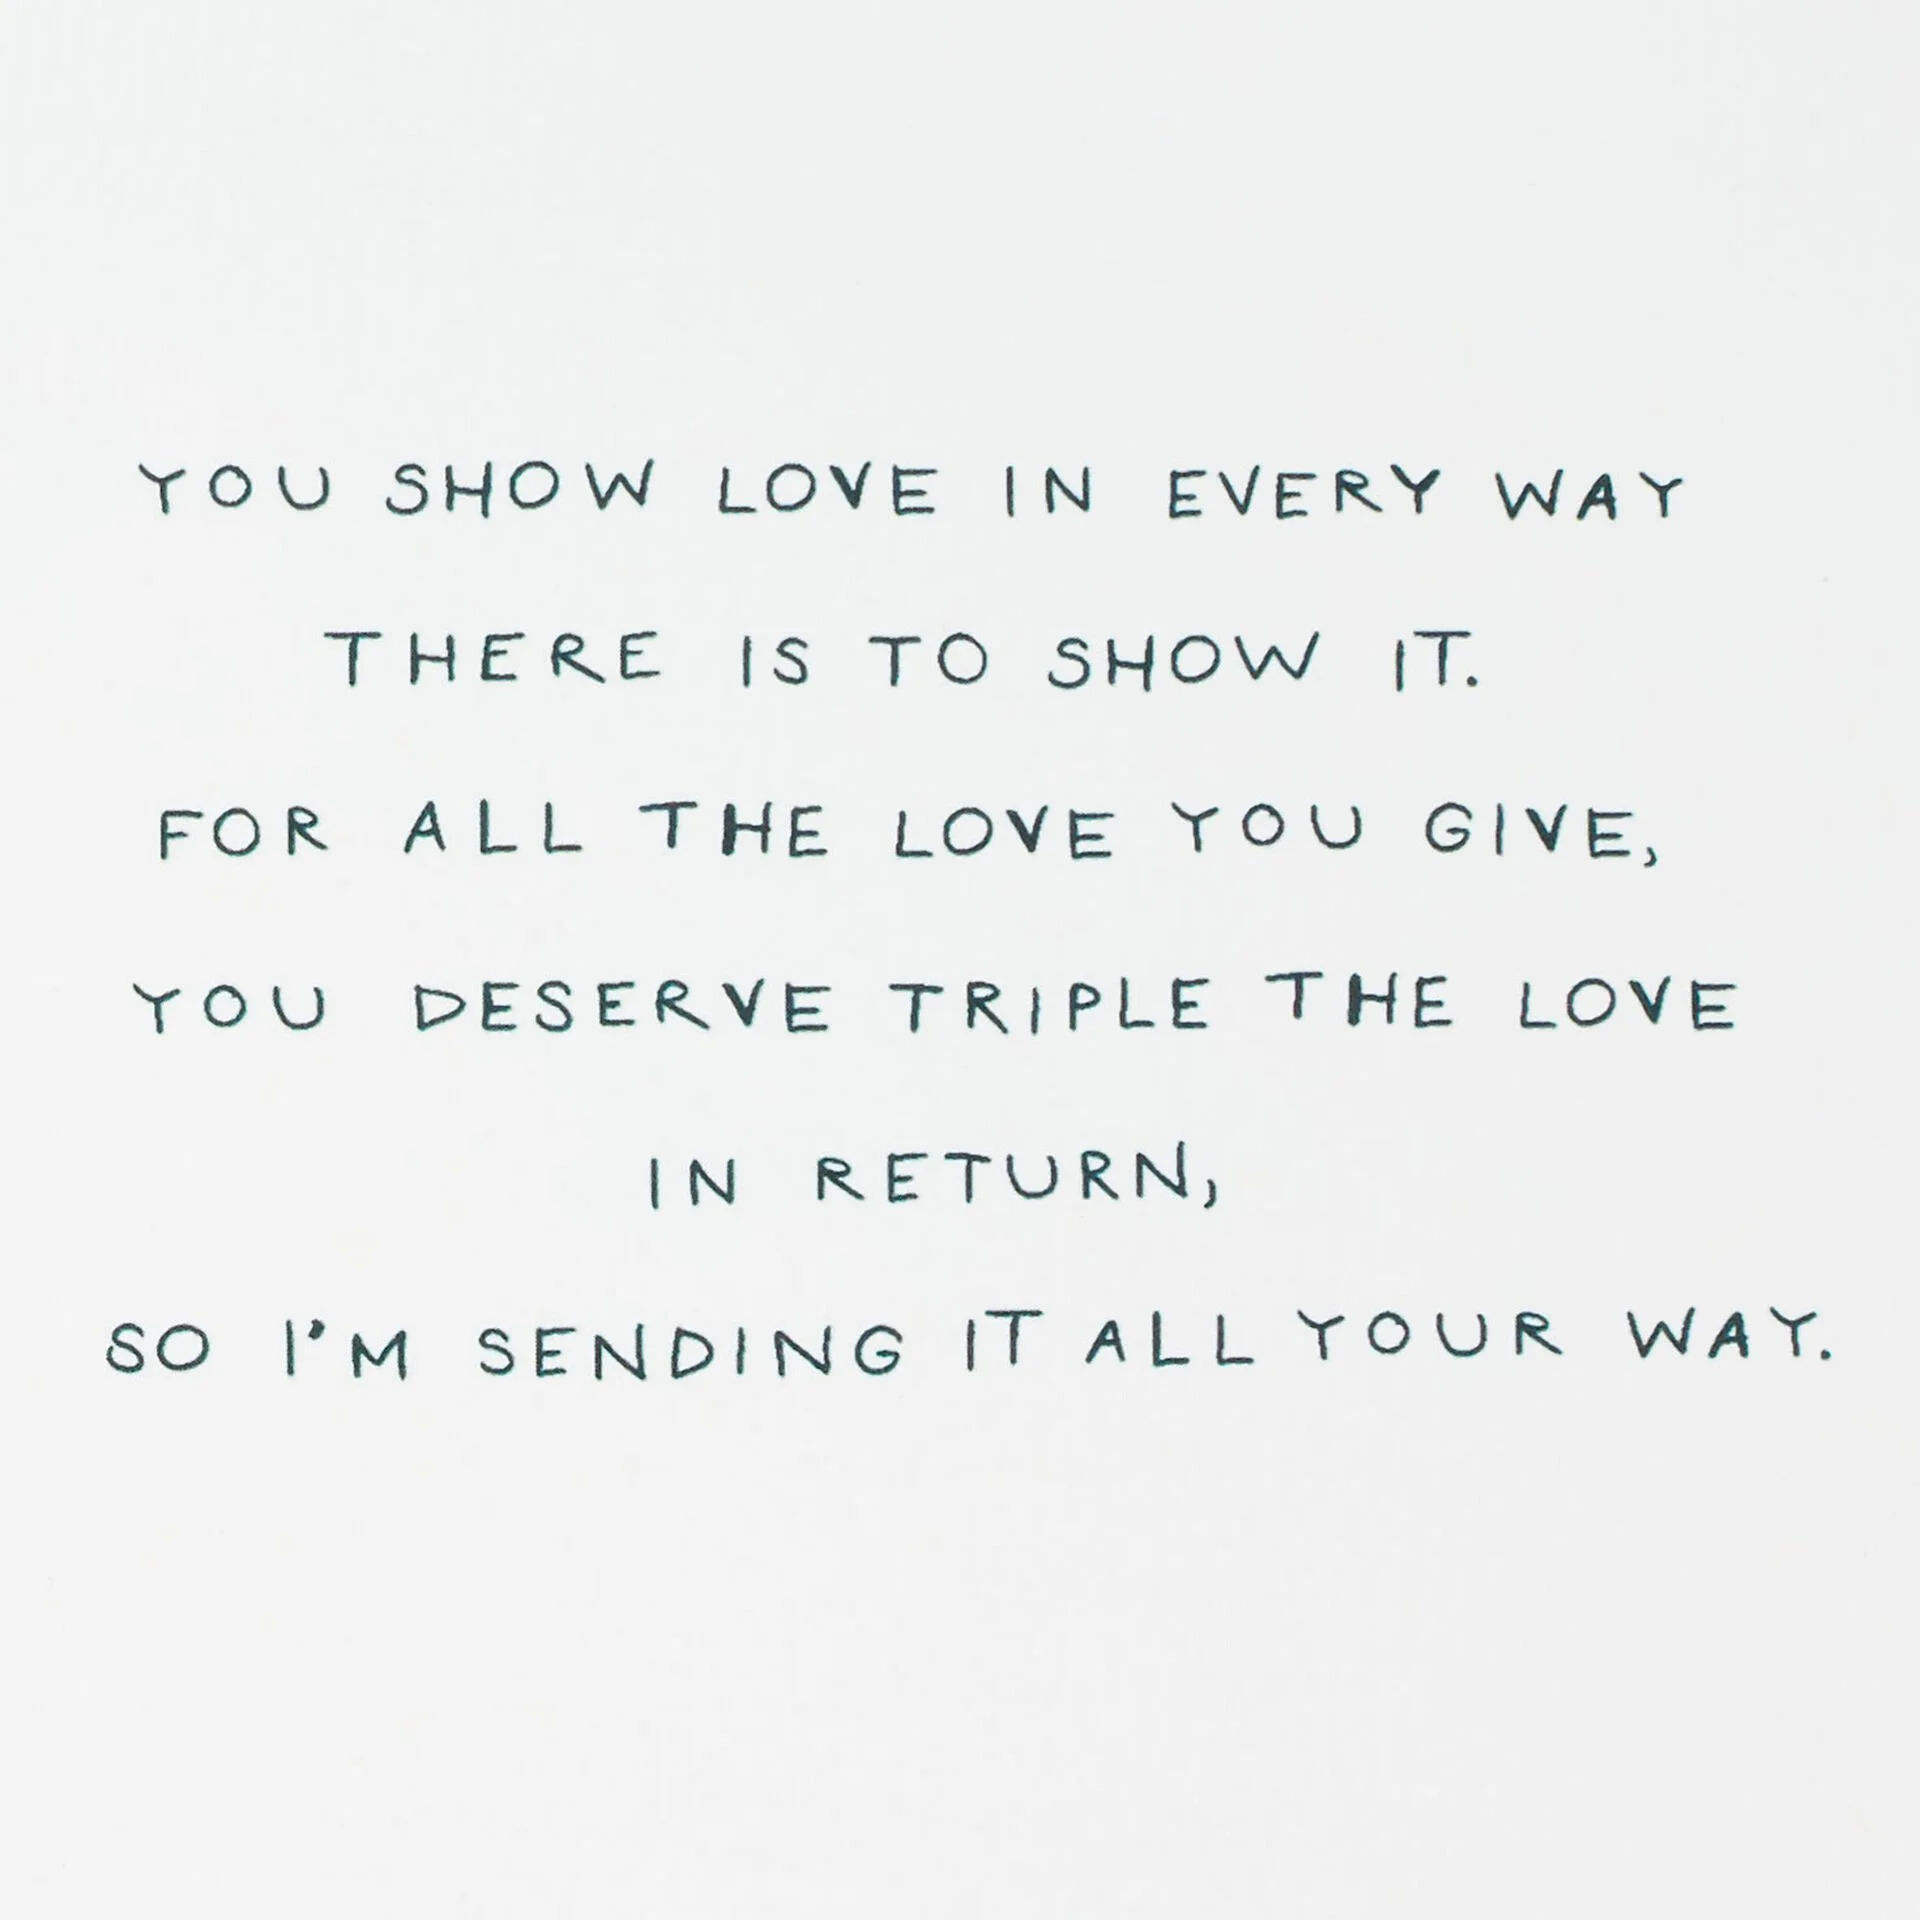 YOU SHOW LOVE IN EVERY WAY
THERE IS TO SHOW IT.
FOR ALL THE LOVE YOU GIVE,
YOU DESERVE TRIPLE THE LOVE
IN RETURN,
SO I'M SENDING IT ALL YOUR WAY.